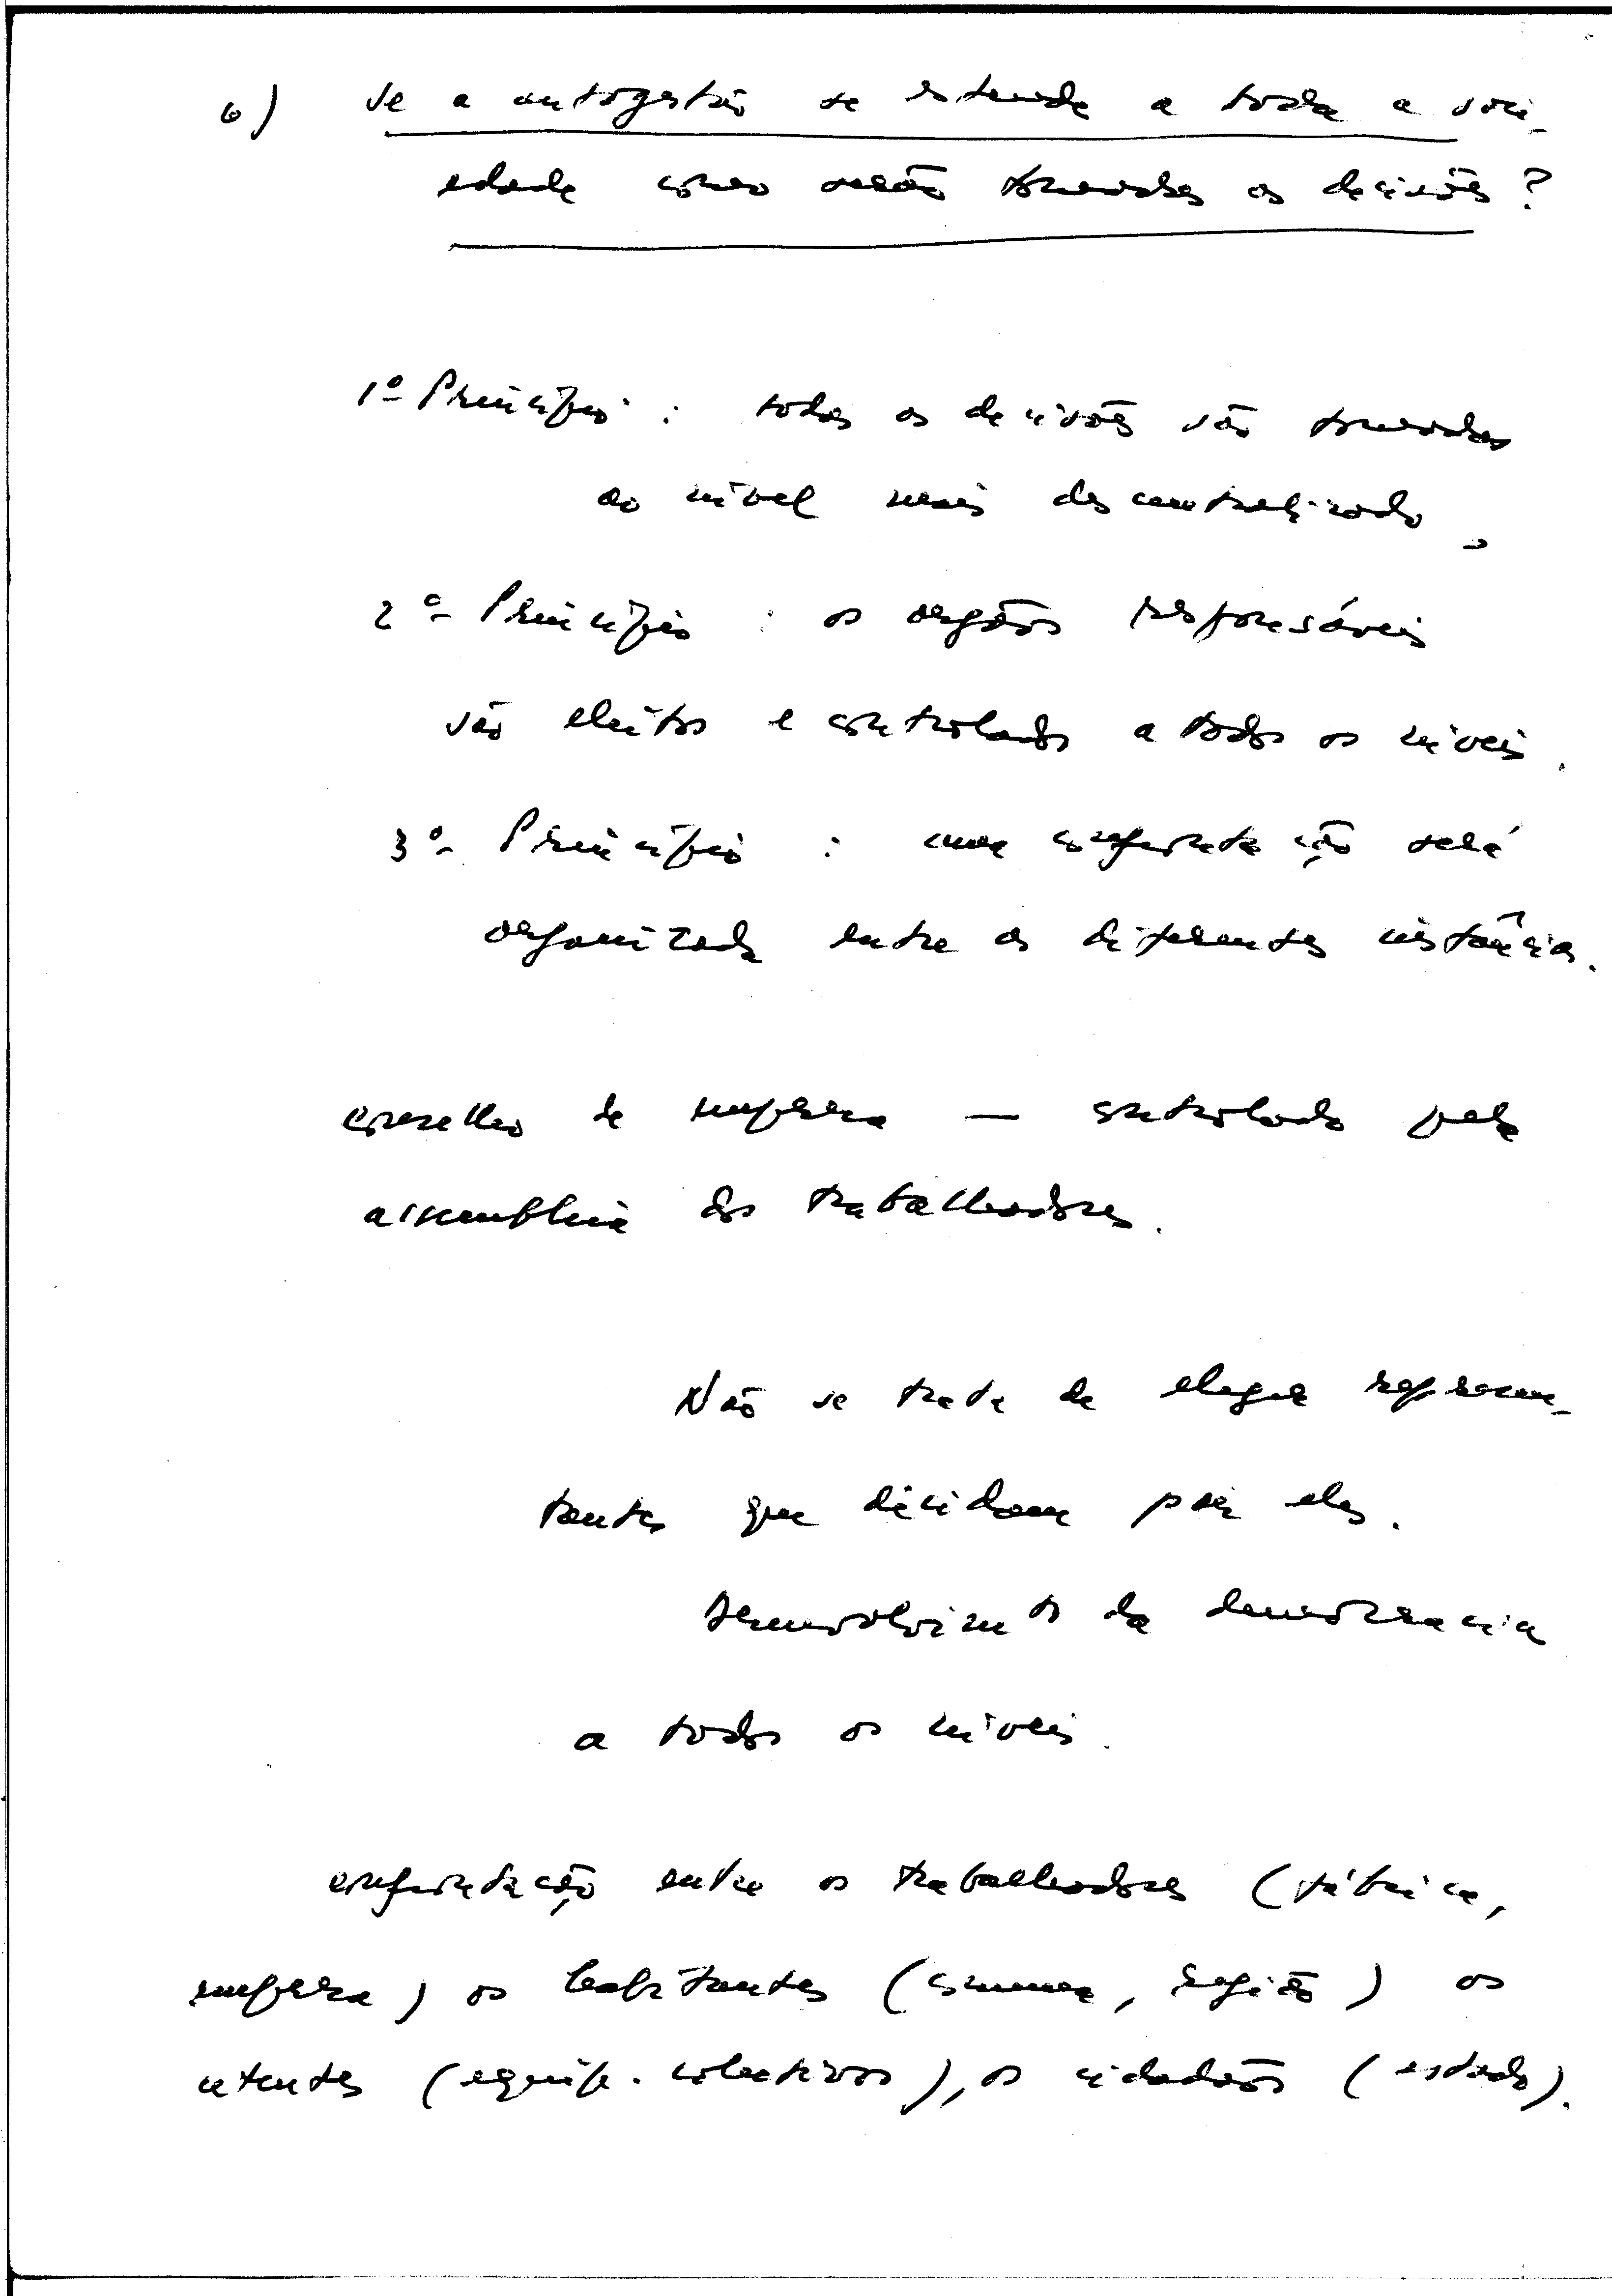 6) Se a autogestão se estende a toda a soci-
edade como serão tomadas as decisões?
1º Princípio : todas as decisões são tomadas
ao nível mais descentralizado,
2º Princípio : os orgãos responsáveis
são eleitos e controlados a todos os níveis.
3º Princípio : uma confrontação será
organizada entre as diferentes instâncias.
conselho de empresa — controlado pela
assembleia dos trabalhadores.
Não se trata de eleger represen-
tantes que decidam por eles.
Desenvolvimento da democracia
a todos os níveis.
confrontação entre os trabalhadores (fábrica,
empresa) os habitantes (comuna, região) os
utentes (equip. colectivos), os cidadãos (estado).